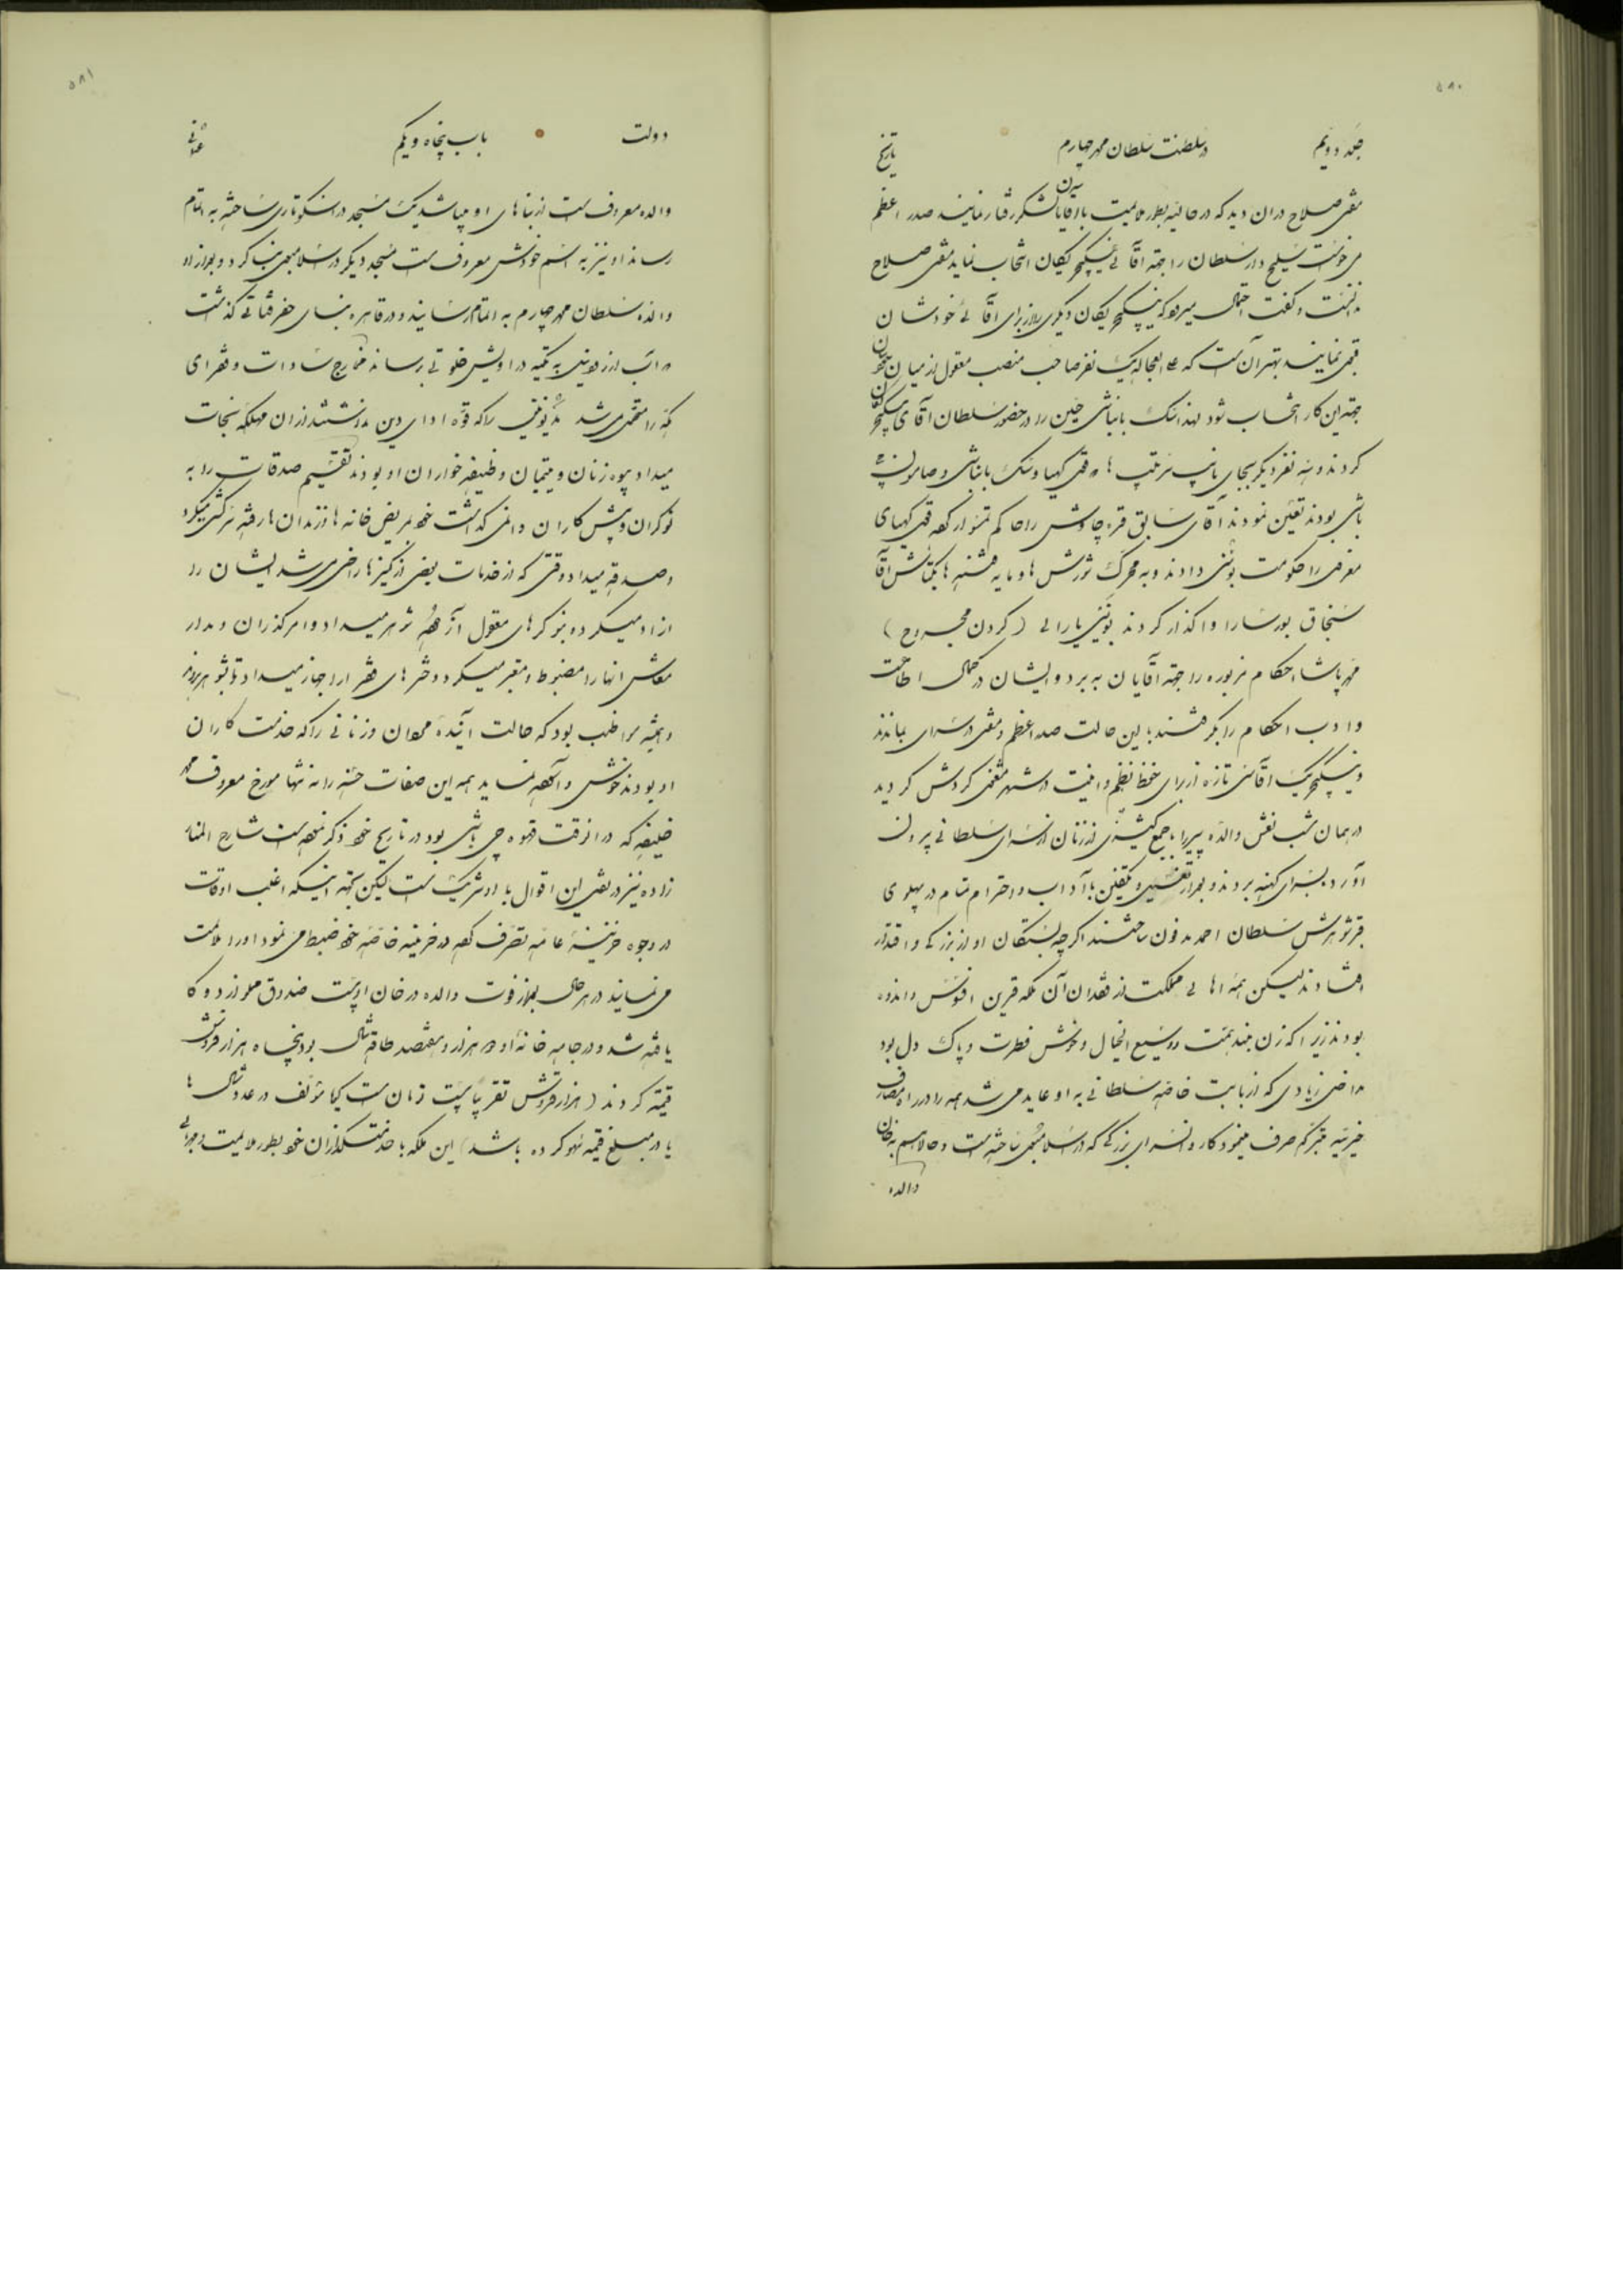 ۵۸۰
جلد دویم در سلطنت سلطان محمد چهارم تاریخ
مفتی صلاح در آن دید که در حالیه بطور ملایمت با آقایان لشکر رفتار نمایند صدر اعظم
می‌خواست سلیح دار سلطان را جهة آقائی ینیکچریکان انتخاب نماید مفتی صلاح
ندانست و گفت احتمال میرود که ینیکچریکان دیگری را از برای آقائی خودشان
نمایند بهتر آن است که یک نفر صاحب منصب معقول از میان
جهة این کار انتخاب شود لهذا بانباشی حسین را در حضور سلطان آقای ینیکچریکان
کردند و سه نفر دیگر بجای
باشی بودند تعیین نمودند آقای سابق قره چاوش را حاکم تمسوار
معرفی را حکومت بوسنی دادند و به محرک شورش‌ها و مایه فتنه‌ها بکتاش آقا
سنجاق بورسا را واگذار کردند بوینی یارالی (گردن مجروح)
محمد پاشا احکام مزبوره را جهة آقایان به برد و ایشان در کمال اطاعت
و ادب احکام را بگرفتند با این حالت صدر اعظم و مفتی در سرای بماندند
و ینیکچریک آقاسی تازه از برای حفظ نظم و امنیت در شهر مشغول گردش گردید
در همان شب نعش والده پیر را با جمع کثیری از زنان از سرای سلطانی بیرون
آورد بسرای کهنه بردند و بعد از تغسیل و تکفین با آداب و احترام تمام در پهلوی
قبر شوهرش سلطان احمد مدفون ساختند اگرچه بستگان او از بزرگی و اقتدار
افتادند لیکن همه اهالی مملکت از فقدان آن ملکه قرین افسوس و اندوه
بودند زیرا که زن بلند همت و وسیع الخیال و خوش فطرت و پاک دل بود
مداخل زیادی که از بابت خاصه سلطانی به او عاید می‌شد همه را در راه مصارف
خیریه متبرکه صرف مینمود کاروانسرای بزرگی که در اسلامبول ساخته است و حالا هم به خان
والده
۵۸۱
دولت باب پنجاه و یکم عثمانی
والده معروف است از بناهای او میباشد یک مسجد در اسکوتاری ساخته به اتمام
رساند او نیز به اسم خودش معروف است مسجد دیگر در اسلامبول بنا کرد و بعد از او
والده سلطان محمد چهارم به اتمام رسانید و در قاهره بنای
آب از به تکیه دراویش خلوتی رساند مخارج سادات و فقرای
مکه را متحمل می‌شد مدیونینی را که قوه ادای دین نداشتند از آن مهلکه نجات
میداد بیوه زنان و یتیمان وظیفه خواران او بودند تقسیم صدقات را به
نوکران و پیش کاران وا نمی گذاشت خود بمریض خانه‌ها و زندان‌ها رفته سرکشی میکرد
و صدقه میداد وقتی که از خدمات بعضی از کنیزها راضی می شد ایشان را
آزاد میکرد و به نوکرهای معقول آزموده شوهر میداد و امر گذران و مدار
معاش آنها را مضبوط و مقرر میکرد و دخترهای فقرا را جهاز میداد تا بشوهر بروند
و همیشه مواظب بود که حالت آینده مردان و زنانی را که خدمت کاران
او بودند خوش و آسوده نماید همه این صفات حسنه را نه تنها مورخ معروف محمد
خلیفه که در آنوقت قهوه چی باشی بود در تاریخ خود ذکر نموده است شارح المنار
زاده نیز در نقل این اقوال با او شریک است لیکن بجهة اینکه اغلب اوقات
در وجوه خزینه عامه تصرف کرده در خزینه خاصه خود ضبط می نمود او را ملامت
می نمایند در هر حال بعد از فوت والده در خان او بیست صندوق مملو از دوکا
یافته شد و در جامه خانه او دو هزار و هفتصد طاقه شال بود پنجاه هزار قروش
قیمة کردند (هزار قروش تقریبا بیست تومان است گویا مؤلف در عدد شال‌ها
یا در مبلغ قیمة سهو کرده باشد) این ملکه با خدمتگذاران خود بطور ملایمت و مهربانی